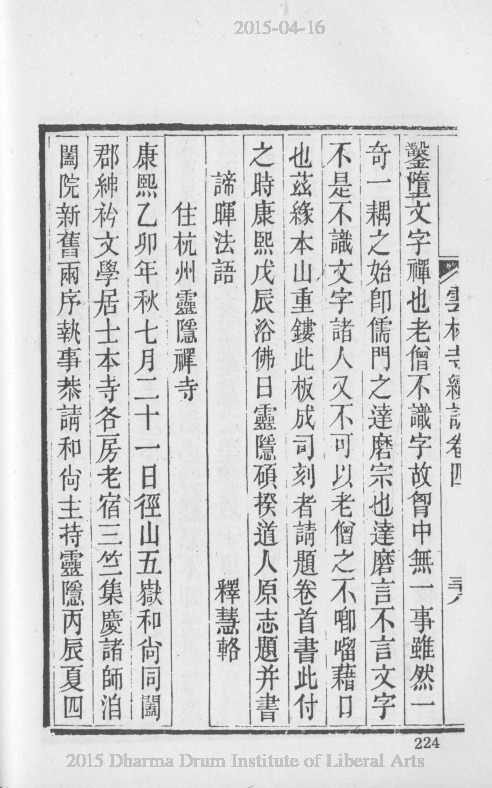 2015-04-16
雲林寺續誌卷四
三十八
鑿墮文字禪也老僧不識字故胷中無一事雖然一
奇一耦之始卽儒門之達磨宗也達磨言不言文字
不是不識文字諸人又不可以老僧之不唧㗰藉口
也茲緣本山重鏤此板成司刻者請題卷首書此付
之時康熙戊辰浴佛日靈隱碩揆道人原志題并書
諦暉法語　釋慧輅
住杭州靈隱禪寺
康熙乙卯年秋七月二十一日徑山五嶽和尙同闔
郡紳衿文學居士本寺各房老宿三竺集慶諸師洎
闔院新舊兩序執事恭請和尙主持靈隱丙辰夏四
224
2015 Dharma Drum Institute of Liberal Arts